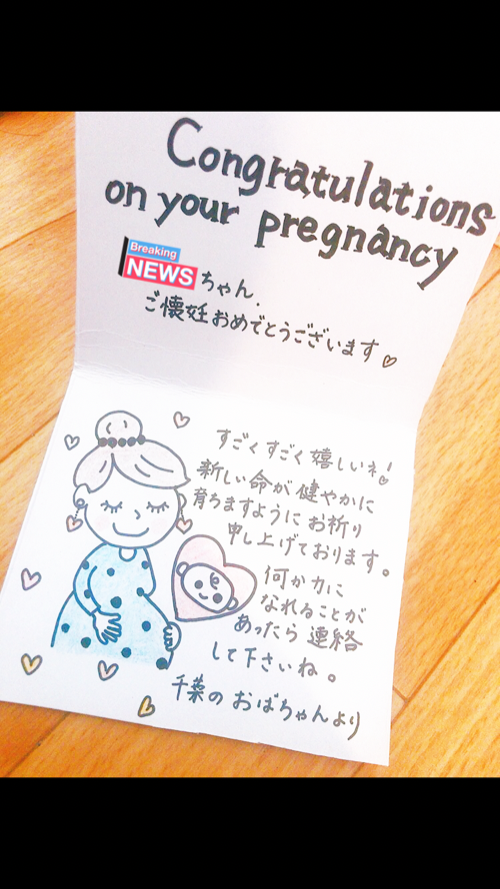 Congratulations
on your pregnancy
Breaking
NEWS ちゃん.
ご懐妊おめでとうございます♡
すごくすごく嬉しいネ!
新しい命が健やかに
育ちますようにお祈り
申し上げております。
何か力に
なれることが
あったら連絡
して下さいね。
千葉のおばちゃんより